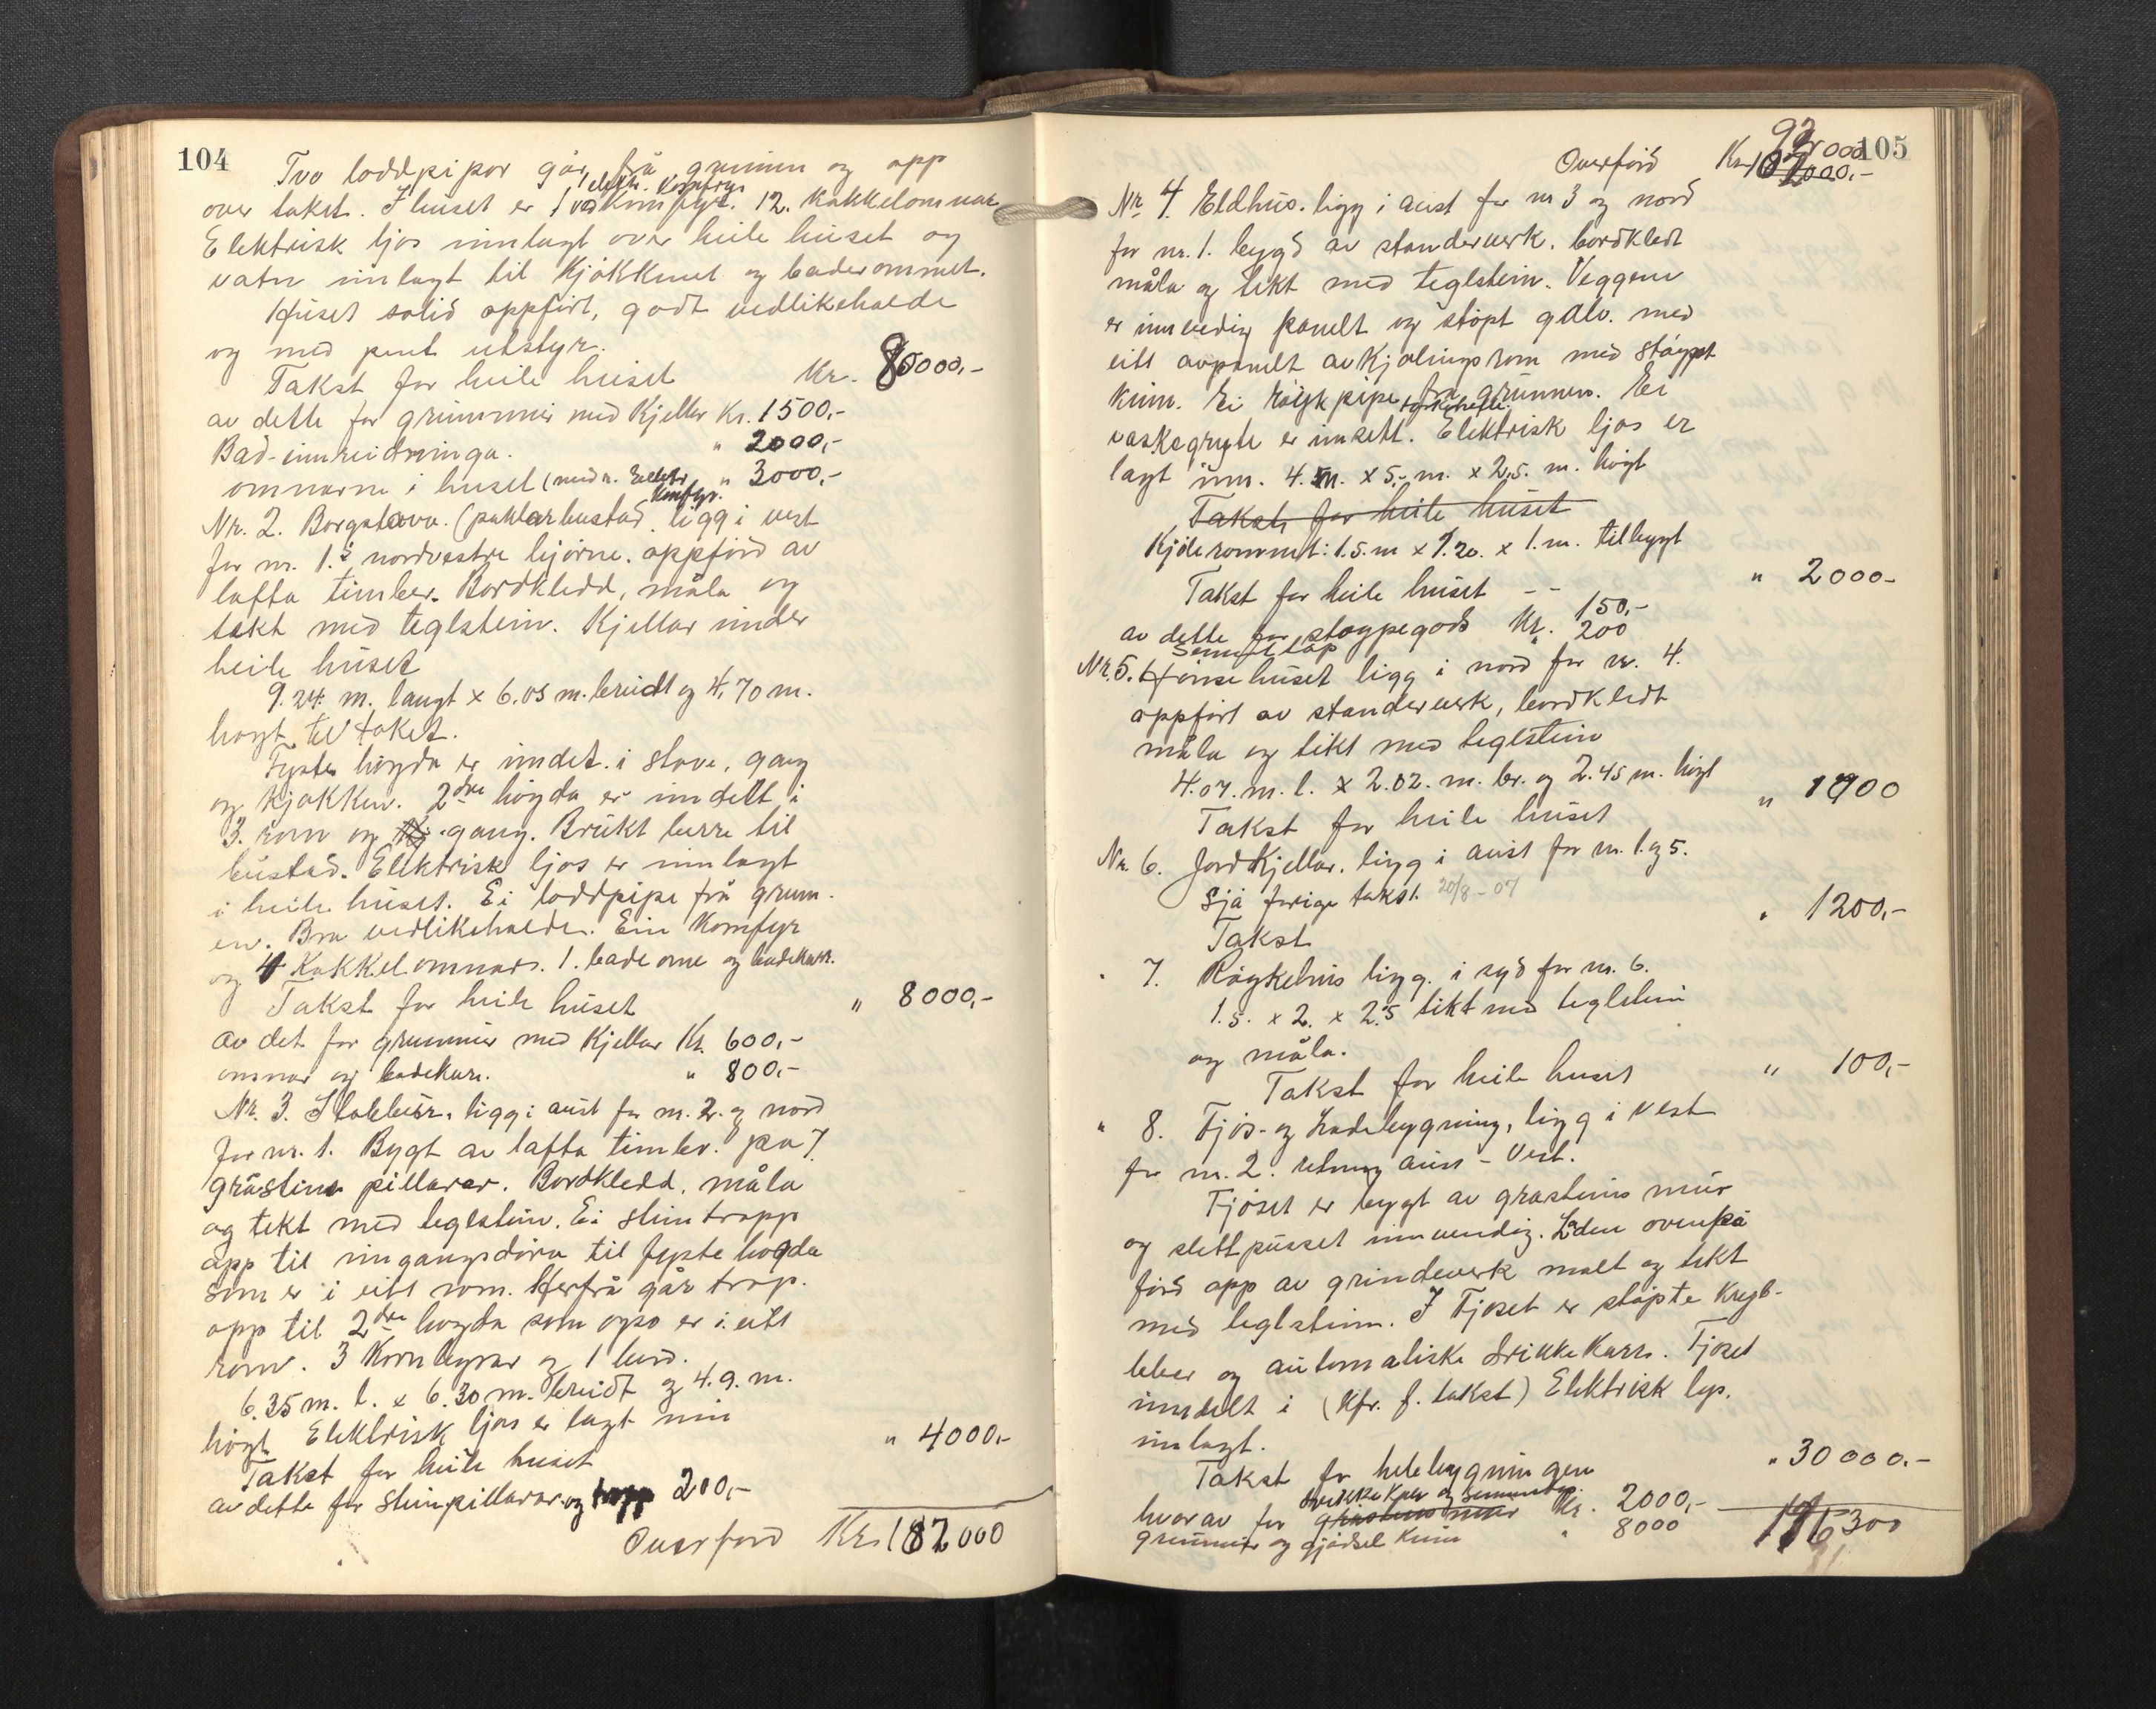 104
Tvo loddpipor går frå grunnen og opp
elektr. Komfyr
over taket. I huset er 1 vaskomfyr. 12. kakkelomnar
Elektrisk ljos innlagt over heile huset og
vatn innlagt til kjøkkenet og baderommet.
Huset solid oppført, godt vedlikehalde
og med pent utstyr.
Takst for heile huset Kr. 80000,-
av dette for grunnmur med Kjellar Kr. 1500,-
Bad-innreidninga. " 2000,-
omnarne i huset (med n. Elektr. " 3000,-
Komfyr.
Nr. 2. Borgstova. (paktarbustad. ligg i vest
for nr. 1.s nordvestre hjørne. oppførd av
lafta timber. Bordkledd, måla og
tekt med teglstein. Kjellar under
heile huset
9.24. m. langt x 6.05 m. breidt og 4,70 m.
høgt til taket.
Fyste høgda er inndelt i stove, gang
og kjøkken. 2dre høgda er inndelt i
3. rom og gang. Brukt berre til
bustad. Elektrisk ljos er innlagt
i heile huset. Ei loddpipe frå grunn-
en. Bra vedlikehalde. Ein Komfyr
og 4 Kakkelomnar. 1. badeomn og badekarr.
Takst for heile huset " 8000,-
av det for grunnmur med Kjellar Kr. 600,-
omnar og badekarr. " 800,-
Nr. 3. Stabbur. ligg i aust for nr. 2. og nord
for nr. 1. Bygt av lafta timber. på 7.
gråsteins pillarar. Bordkledd, måla
og tekt med teglstein. Ei steintrapp
opp til inngangsdøra til fyste høgda
som er i eitt rom. Herfrå går trap.
opp til 2dre høgda som ogso er i eitt
rom. 3 Kornbyrar og 1 bord.
6.35 m. l. x 6.30 m. breidt og 4.9. m.
høgt. Elektrisk ljos er lagt inn
Takst for heile huset " 4000,-
av dette for steinpillarar og trapp 200,-
Overførd Kr. 182000
105
92000
Overførd Kr. 102000,-
Nr. 4. Eldhus. ligg i aust for nr 3 og nord
for nr. 1. bygd av standerverk. bordkledt
måla og tekt med teglstein. Veggene
er innvendig panelt og støpt golv. med
eitt avpanelt avkjølingsrom med støypt
kum. Ei røykpipe frå grunnen. Ei
vaskegryte er innsett. Elektrisk ljos er
lagt inn. 4. m. x 5. m. x 2.5. m. høgt
Takst for heile huset
Kjølerommet: 1.5. m x 1.20. x 1. m. tilbygt
Takst for heile huset - - " 2000-
150,-
av dette for støypegods Kr. 200
Nr. 5. Hønsehuset ligg i nord for nr. 4.
oppført av standerverk, bordkledt
måla og tekt med teglstein
4.07. m. l. x 2.02. m. br. og 2.45 m. høgt
Takst for heile huset " 1900
Nr. 6. Jordkjellar. ligg i aust for nr. 1. og 5.
Sjå forige takst. 20/8-07
Takst " 1200,-
" 7. Røykehus ligg. i syd for nr. 6.
1.5. x 2. x 2.5 tekt med teglstein
og måla.
Takst for heile huset " 100,-
" 8. Fjøs- og Ladebygning, ligg i vest
for nr. 2. retning aust - Vest.
Fjøset er bygt av gråsteins mur
og slettpusset innvendig. Løden ovenpå
førd opp av grindeverk malt og tekt
med teglstein. I Fjøset er støpte Kryb-
bber og automatiske drikkekarr. Fjøset
inndelt i (Kfr. f. takst) Elektrisk lys.
innlagt.
Takst for hele bygningen " 30000.-
hvorav for gråsteins mur Kr. 2000,-
grunnmur og gjødsel kum " 8000
116300